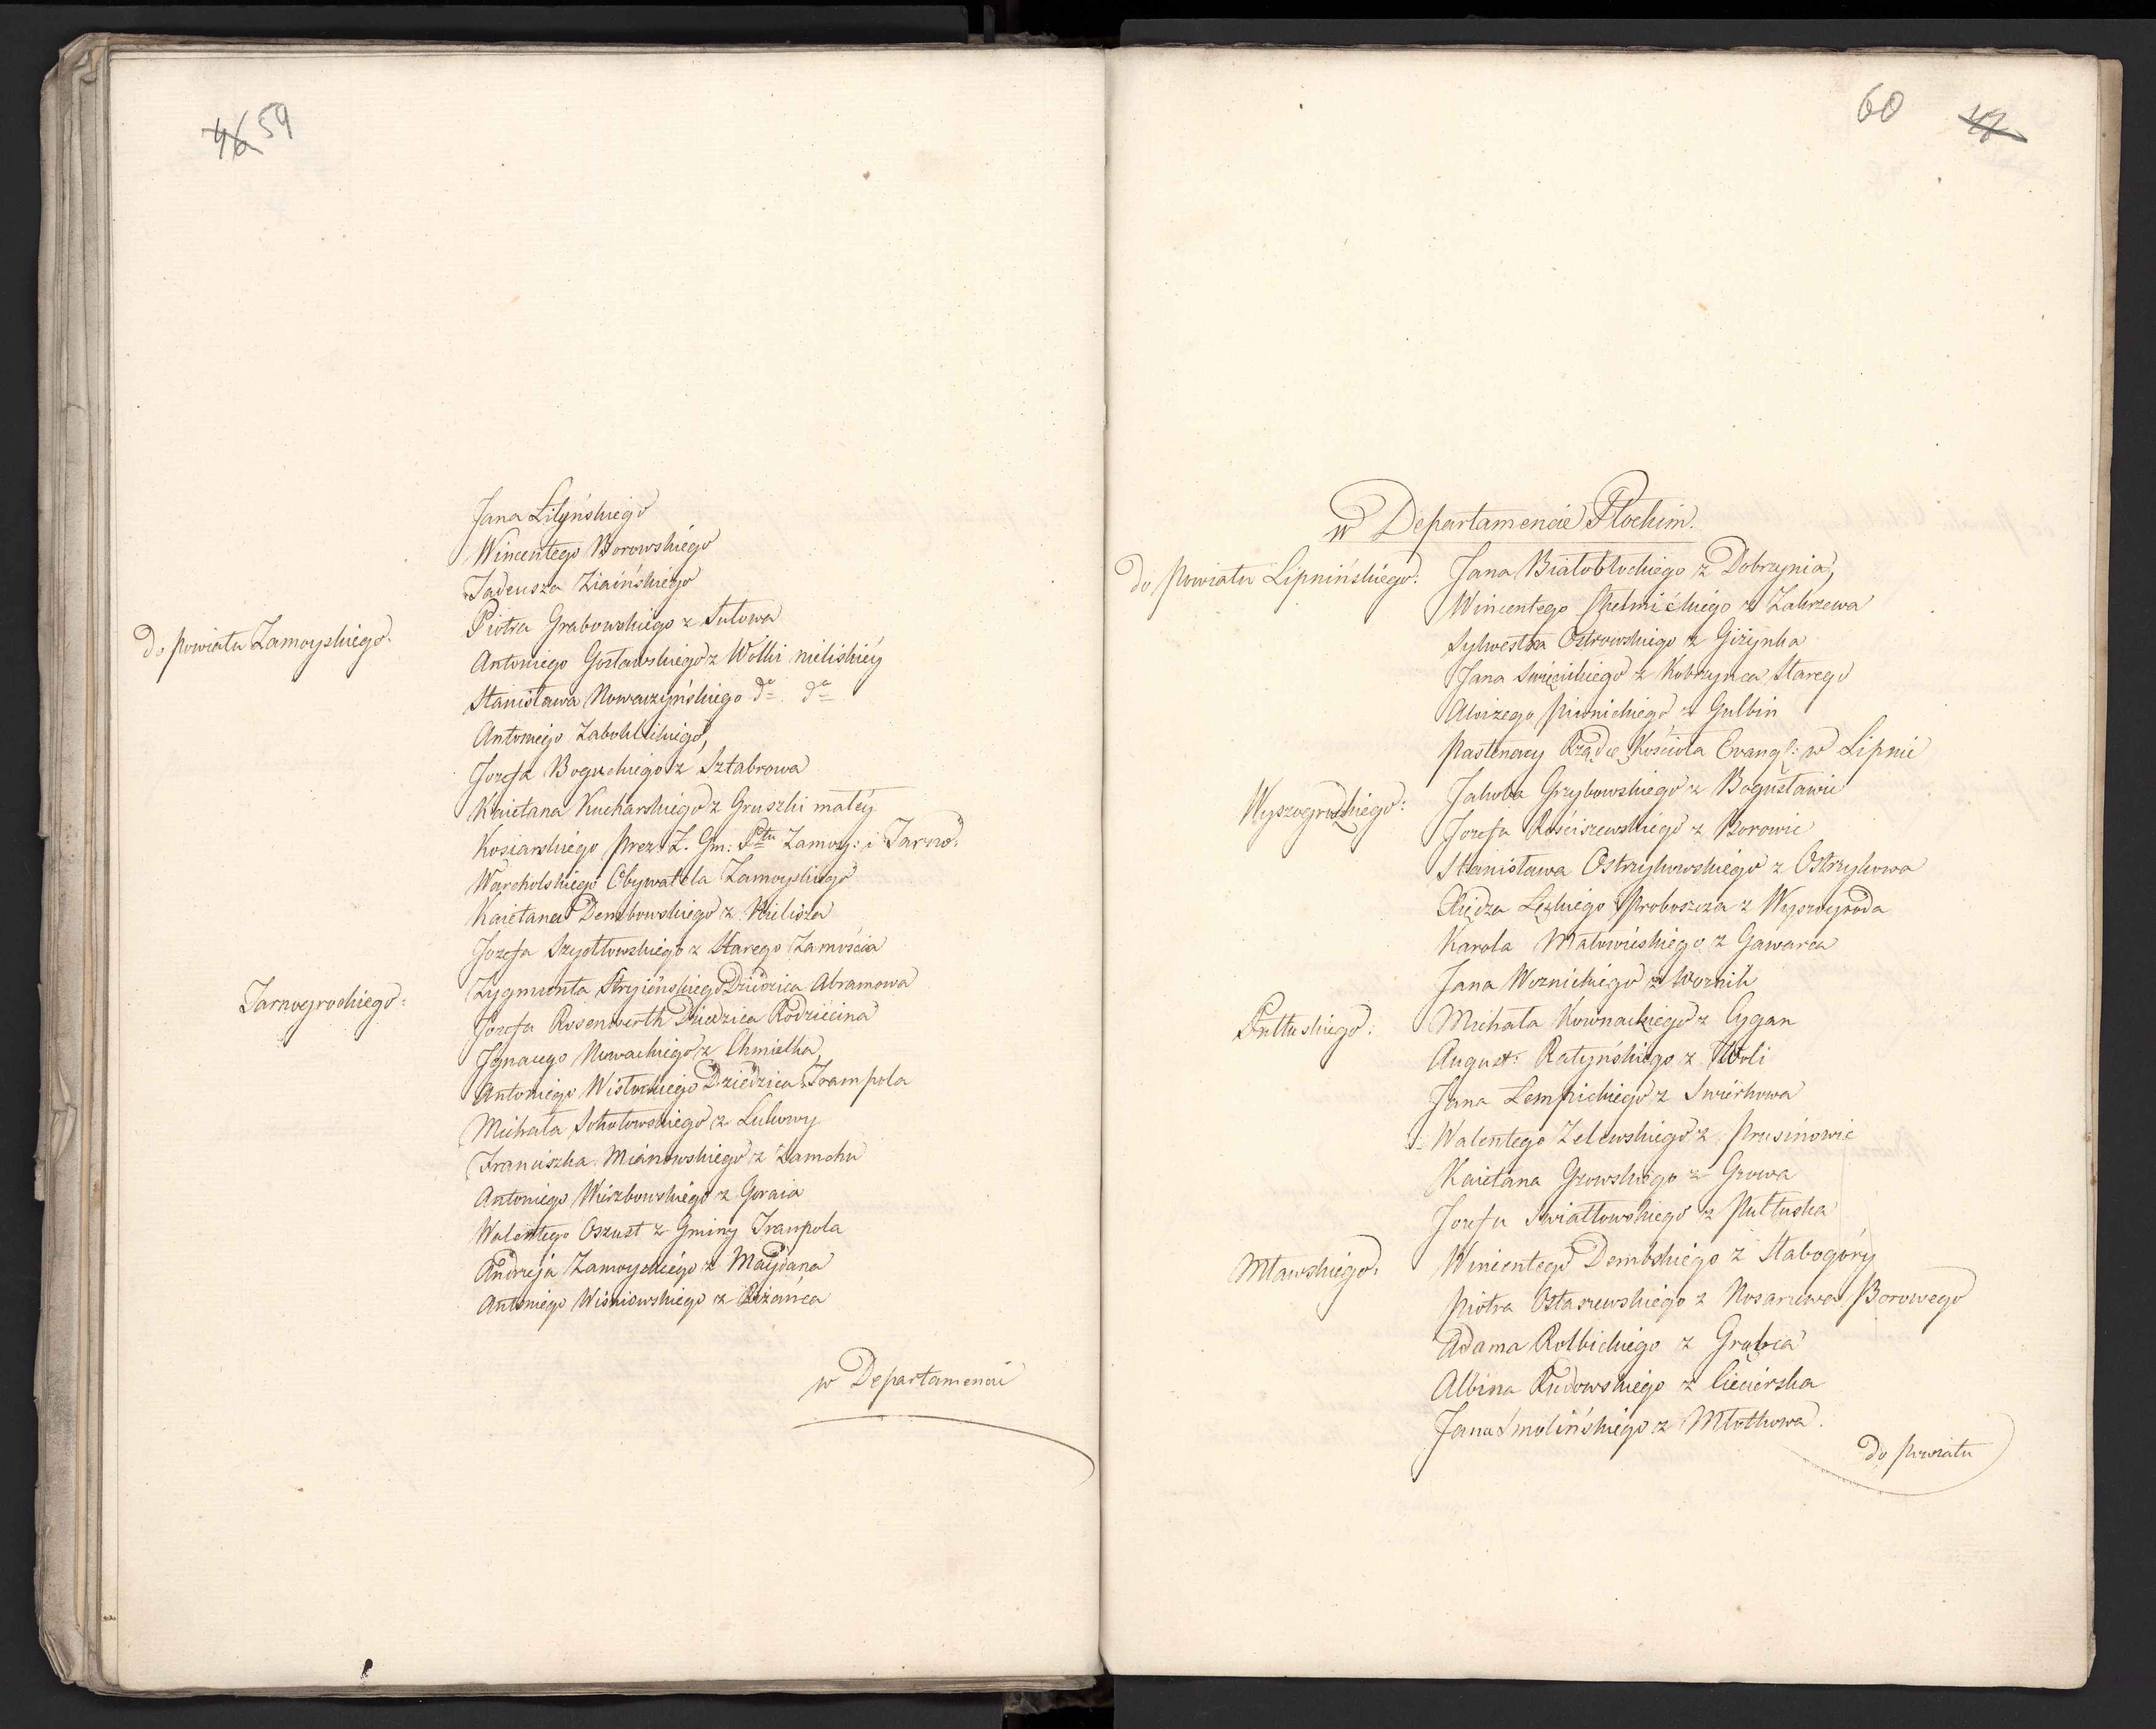 46 59
Jana Lityńskiego
Wincentego Borowskiego
Tadeusza Ziaińskiego
do powiatu Zamoyskiego:
Piotra Grabowskiego z Sułowa
Antoniego Gosławskiego z Wolki nieliskiey
Stanisława Nowaczyńskiego do do
Antoniego
Jozefa Boguckiego z Sztabrowa
Kaietana Kucharskiego z Gruszki małey
Kosiarskiego Prez. Z. Gm: Ptu Zamoy: i Tarno.
Warcholskiego Obywatela Zamoyskiego
Kaietana Dembowskiego z Nielisza
Jozefa Szydłowskiego z Starego Zamościa
Tarnogrodskiego:
Zygmunta Stryieńskiego Dziedzica Abramowa
Jozefa Rosenwerth Dziedzica Rodziecina
Jgnacego Nowackiego z Chmielka
Antoniego Wisłockiego Dziedzica Frampola
Michała Sokołowskiego z Lukowy
Franciszka Mianowskiego z Zamchu
Antoniego Wierzbowskiego z Goraia
Walentego Oszust z Gminy Franpola
Andrzeja Zamoyskiego z Maydana
Antoniego Wiśniowskiego z Biżańca
w Departamencie
60 47
w Departamencie Płockim.
do powiatu Lipnińskiego:
Jana Białobłockiego z Dobrzynia,
Wincentego Chełmickiego z Zakrzewa
Sylwestra Ostrowskiego z Giżynka
Jana Swięcickiego z Kobrzynca Starego
Aloizego Piwnickiego z Gulbin
Pastenacy Rządcę Kościoła Evangl: w Lipnie
Wyszogrodzkiego:
Jakóba Grzybowskiego z Bogusławic
Jozefa Rościszewskiego z Borowic
Stanisława Ostrzykowskiego z Ostrzykowa
Xiędza Lęskiego Proboszcza z Wyszogroda
Karola Małowieskiego z Gawarca
Jana Woznickiego z Woznik
Pułtuskiego:
Michała Kownackiego z Cygan
August: Ratyńskiego z Woli
Jana Lempickiego z Swierkowa
Walentego Zelewskiego z Prusinowic
Kaietana Gzowskiego z Gzowa
Jozefa Swiatłowskiego z Pułtuska
Mławskiego:
Wincentego Dembskiego z Stabogóry
Piotra Ostaszewskiego z Nosarzewa Borowego
Adama Rolbickiego z Grabca
Albina Rudowskiego z Ciecierska
Jana Smolińskiego z Młotkowa.
do powiatu